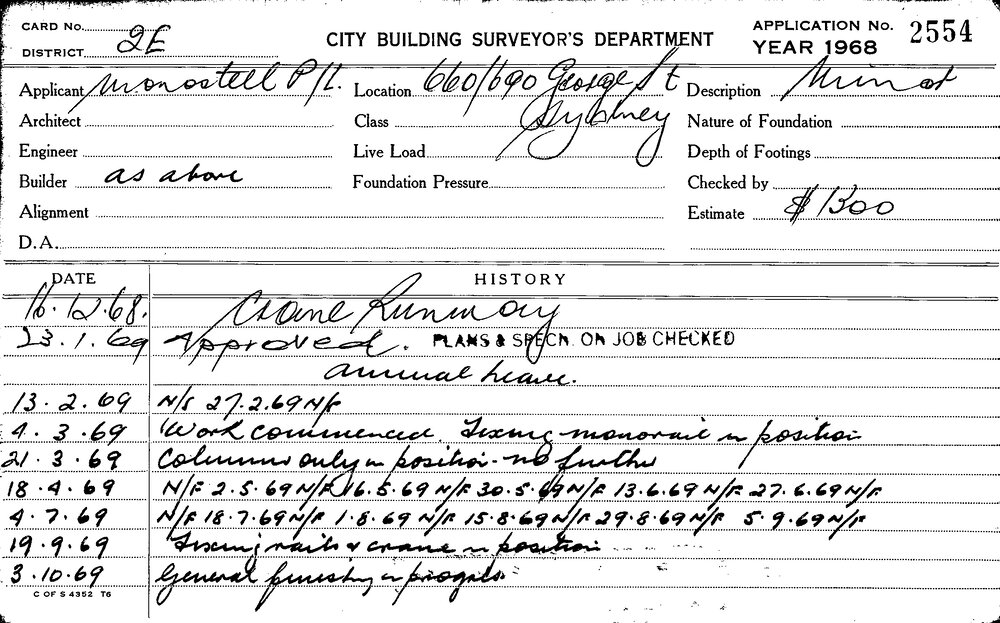 CARD No.
DISTRICT 2E
CITY BUILDING SURVEYOR'S DEPARTMENT
APPLICATION No. 2554
YEAR 1968
Applicant Monosteel P/L.
Location 660/690 George St Sydney
Description Minor
Architect
Class
Nature of Foundation
Engineer
Live Load
Depth of Footings
Builder as above
Foundation Pressure
Checked by
Alignment
Estimate $1300
D.A.
DATE HISTORY
16.12.68. Crane Runway
23.1.69 Approved. PLANS & SPECN. ON JOB CHECKED
annual leave.
13.2.69 N/S 27.2.69 N/F
4.3.69 Work commenced. Fixing monorail in position
21.3.69 Columns only in position - no further
18.4.69 N/F 2.5.69 N/F 16.5.69 N/F 30.5.69 N/F 13.6.69 N/F 27.6.69 N/F
4.7.69 N/F 18.7.69 N/F 1.8.69 N/F 15.8.69 N/F 29.8.69 N/F 5.9.69 N/F
19.9.69 Fixing rails & crane in position
3.10.69 General finishing in progress
C OF S 4352 T6